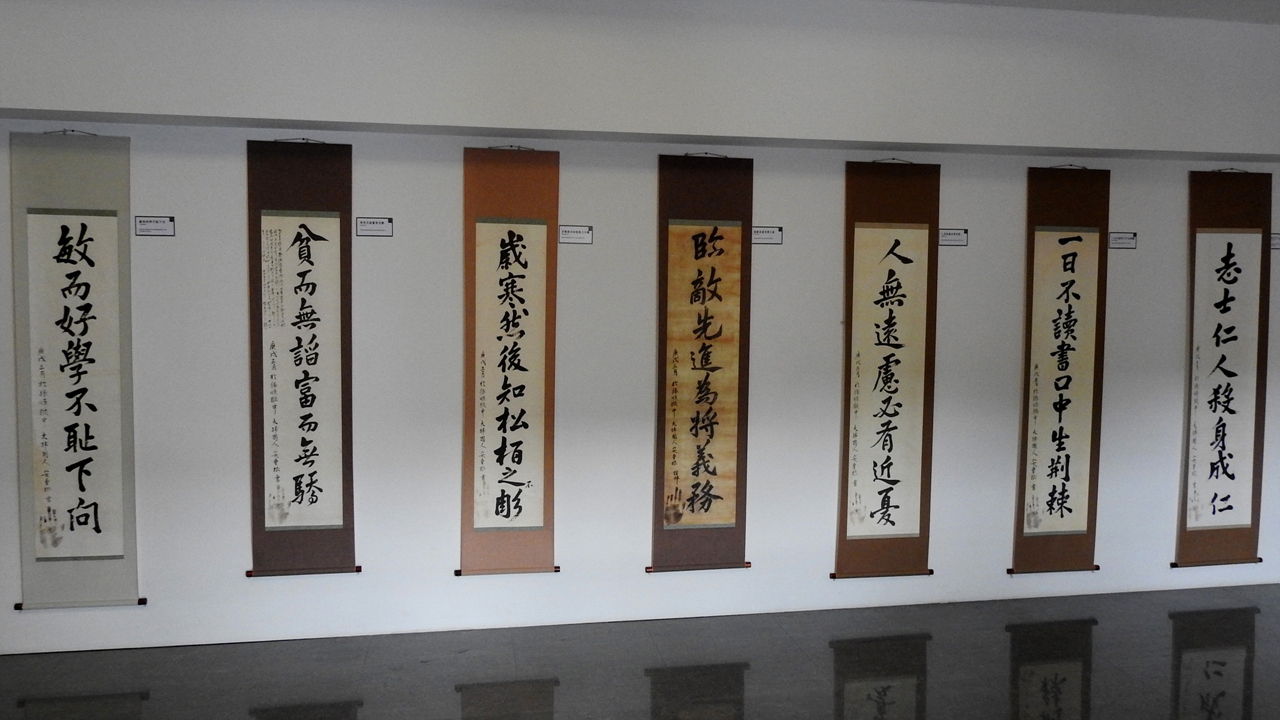 敏而好學不恥下問
庚戌三月 於旅順獄中 大韓國人 安重根 書
貧而無諂富而無驕
庚戌三月 於旅順獄中 大韓國人 安重根 書
歲寒然後知松栢之不彫
庚戌三月 於旅順獄中 大韓國人 安重根 書
臨敵先進為將義務
庚戌三月 於旅順獄中 大韓國人 安重根
人無遠慮必有近憂
庚戌三月 於旅順獄中 大韓國人 安重根 書
一日不讀書口中生荊棘
庚戌三月 於旅順獄中 大韓國人 安重根 書
志士仁人殺身成仁